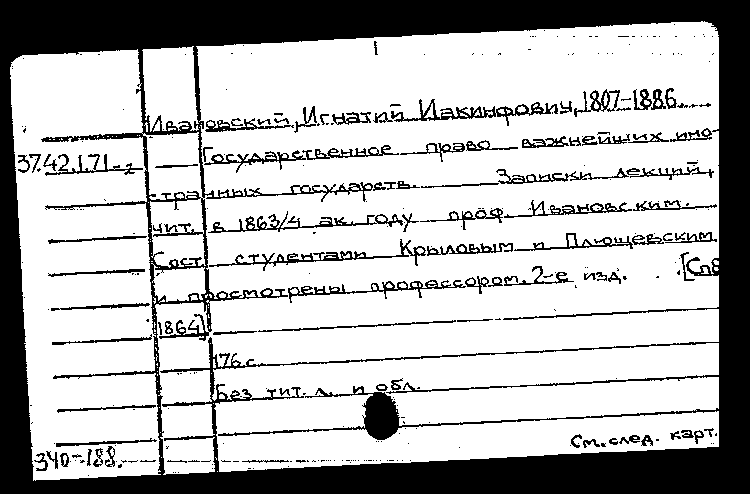 Ивановский, Игнатий Иакинфович, 1807-1886.
37.42.1.71-2 Государственное право важнейших ино-
странных государств. Записки лекций,
чит. в 1863/4 ак. году проф. Ивановским.
Сост. студентами Крыловым и Плющевским
и просмотрены профессором. 2-е изд. [Спб
1864]
176 с.
Без тит. л. и обл.
340-188.
См. след. карт.